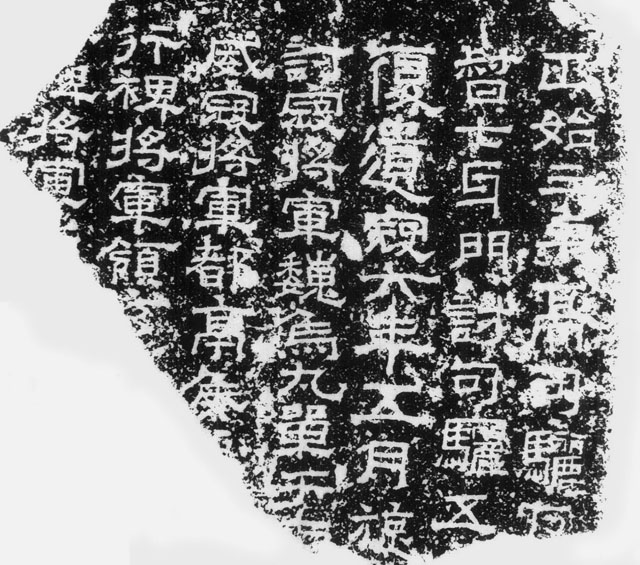 正始三年高句驪
督七牙門討句驪五
復遺寇六年五月旋
討寇將軍魏烏丸單于
威寇將軍都亭侯
行裨將軍領
裨將軍